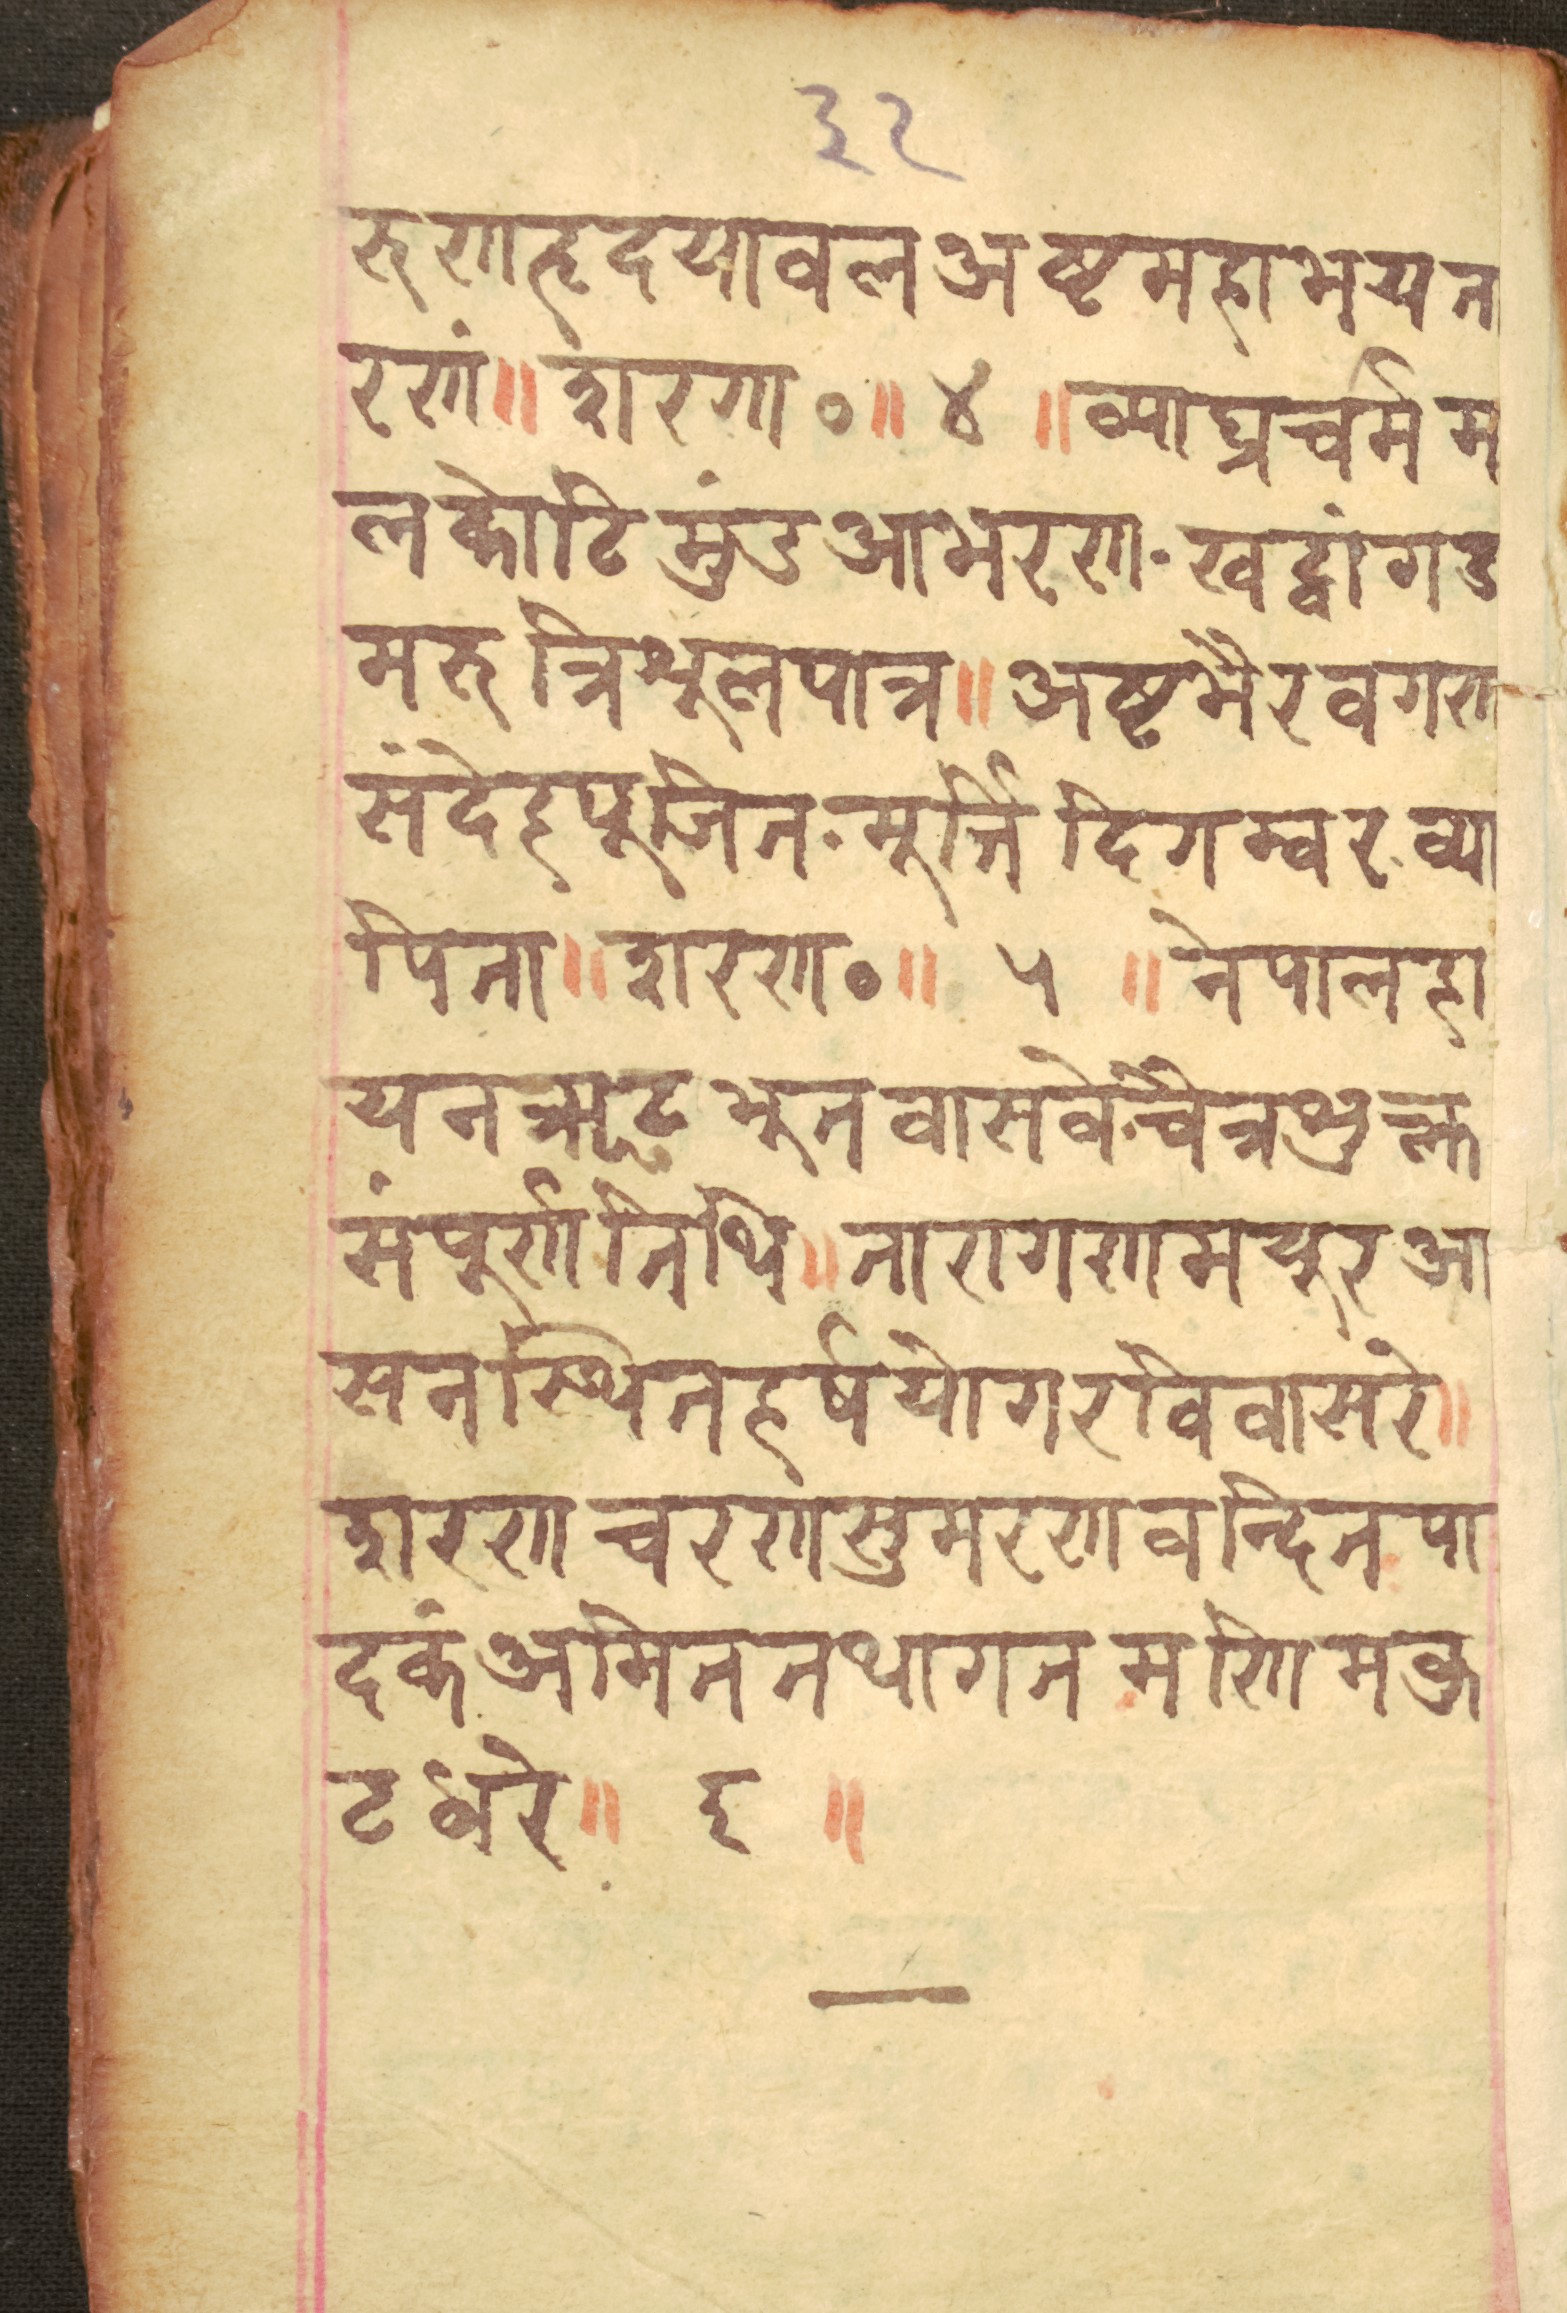 ३२
रुणहृदयावल अष्टमहाभयत
रणं॥ शरण०॥ ४ ॥ व्याघ्रचर्म म
लकोटि मुंड आभरण. खट्वांग ड
मरु त्रिशूलपात्र॥ अष्टभैरवगण
संदेहपूजित. मूर्त्ति दिगम्बर व्या
पिता॥ शरण०॥ ५ ॥ नेपालहा
यन भूतवासवे. चैत्रशुक्ल
संपूर्ण तिथि॥ तारागणमयुर आ
सनस्थित हर्षयोग रविवासरे॥
शरण चरण सुमरण वन्दित पा
दकं अमित तथागत मणि मकु
ट धरे॥ ६ ॥